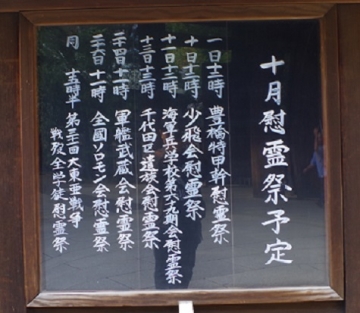 十月慰霊祭予定
一日 十二時 豊橋特甲幹慰霊祭
十日 十三時 少飛会慰霊祭
十一日 十二時 海軍兵学校第六九期会慰霊祭
十三日 十三時 千代田区遺族会慰霊祭
二十四日 十一時 軍艦武蔵会慰霊祭
二十六日 十一時 全国ソロモン会慰霊祭
同 十五時半 第三十一回大東亜戦争
戦歿全学徒慰霊祭